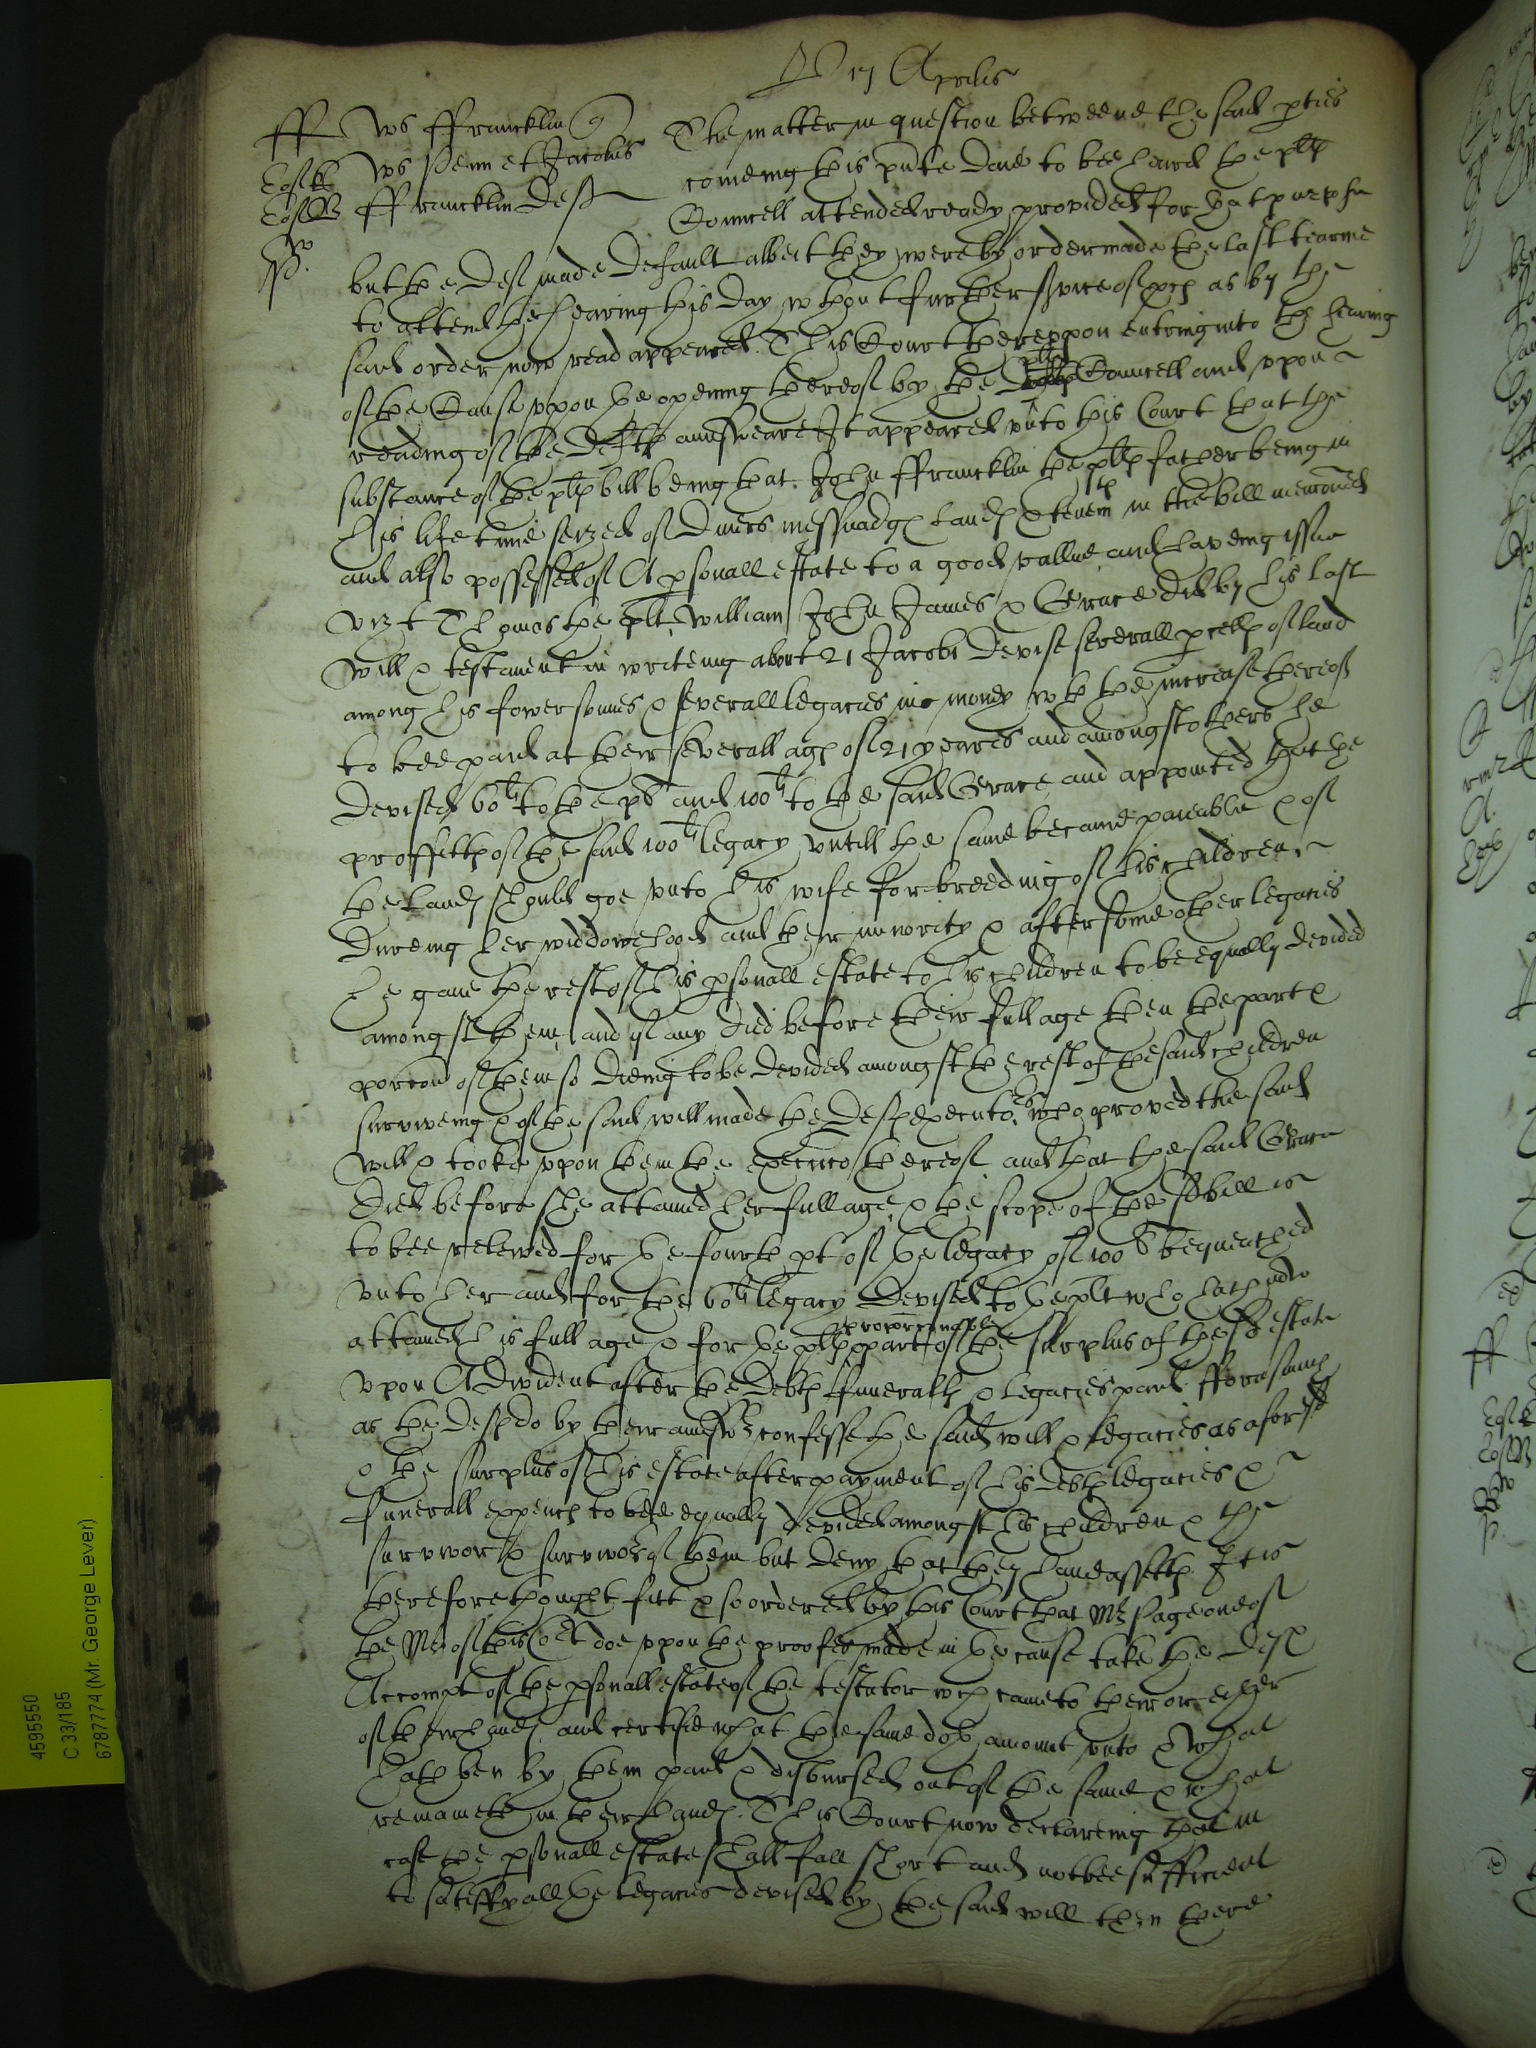 17 Aprilis
ff ws ffrancklin q The matter in question betweene the said pties
ws Penn et Jacobus comeing this pnte daie to bee heard the pltes
ffrancklin Defts Councell attended ready provided for that purpose
but the Defts made default albeit they were by order made the last tearme
to attend the hearing this day wthout further service of pces as by the
said order now read appeared. This Court thereuppon entring into the hearing
of the Cause uppon the opening thereof by the pltes Councell and upon
reading of the Defts aunsweare It appeared unto this Court that the
substance of the pltes bill being that John ffrancklin the pltes father being in
his life time seized of divers messuadges landes & tenemts in the bill menconed
and also possessed of A psonall estate to a good vallue and haveing issue
vizt Thomas the plt, William John James & Grace did by his last
will & testament in writeing about 21 Jacobi devise severall pcells of land
among his fower sonnes & severall legacies in money wth the increase thereof
to bee paid at their severall ages of 21 yeares and amongst others he
devised 60li to the plt and 100li to the said Grace and appointed that the
proffitts of the said 100li legacy untill the same became paieable & of
the landes should goe unto his wife for breeding of his children
dureing her widdowehood and their minority & after some other legacies
he gave the rest of his psonall estate to his children to be equally devided
amongst them, and if any died before their full age then the part &
porcon of them so dieing to be devided amongst the rest of the said children
surviveing & of the said will made the Defts executors who proved the said
will & tooke uppon them the execucon thereof and that the said Grace
died before she attained her full age, & the scope of the sd bill is
to bee releived for the fourth pt of the legacy of 100li bequeathed
unto her and for the 60li legacy devised to the plt who hath now
attained his full age & for the pltes proporconable part of the surplus of the sd estate
upon A divident after the debts ffuneralls & legacies paid. fforasmuch
as the Defts do by their answer confesse the said will & legacies as aforesd
& the surplus of his estate after payment of his debts legacies &
funerall expences to bee equally devided amongst his children & the
survivor & survivors of them but deny that they have assetts. It is
therefore thought fitt & so ordered by this Court that Mr Page one of
the Mrs of this Court doe uppon the proofes made in the cause take the Defts
Accompt of the psonall estate of the testator wch came to their or either
of their handes and certifie what the same doth amount unto & what
hath ben by them paid & disbursed out of the same & what
remaineth in their handes. This Court now declareing that in
case the psonall estate shall fall short and not bee sufficient
to satisfy all the legacies devised by the said will then there
4595550
C 33/185
6787774 (Mr. George Lever)